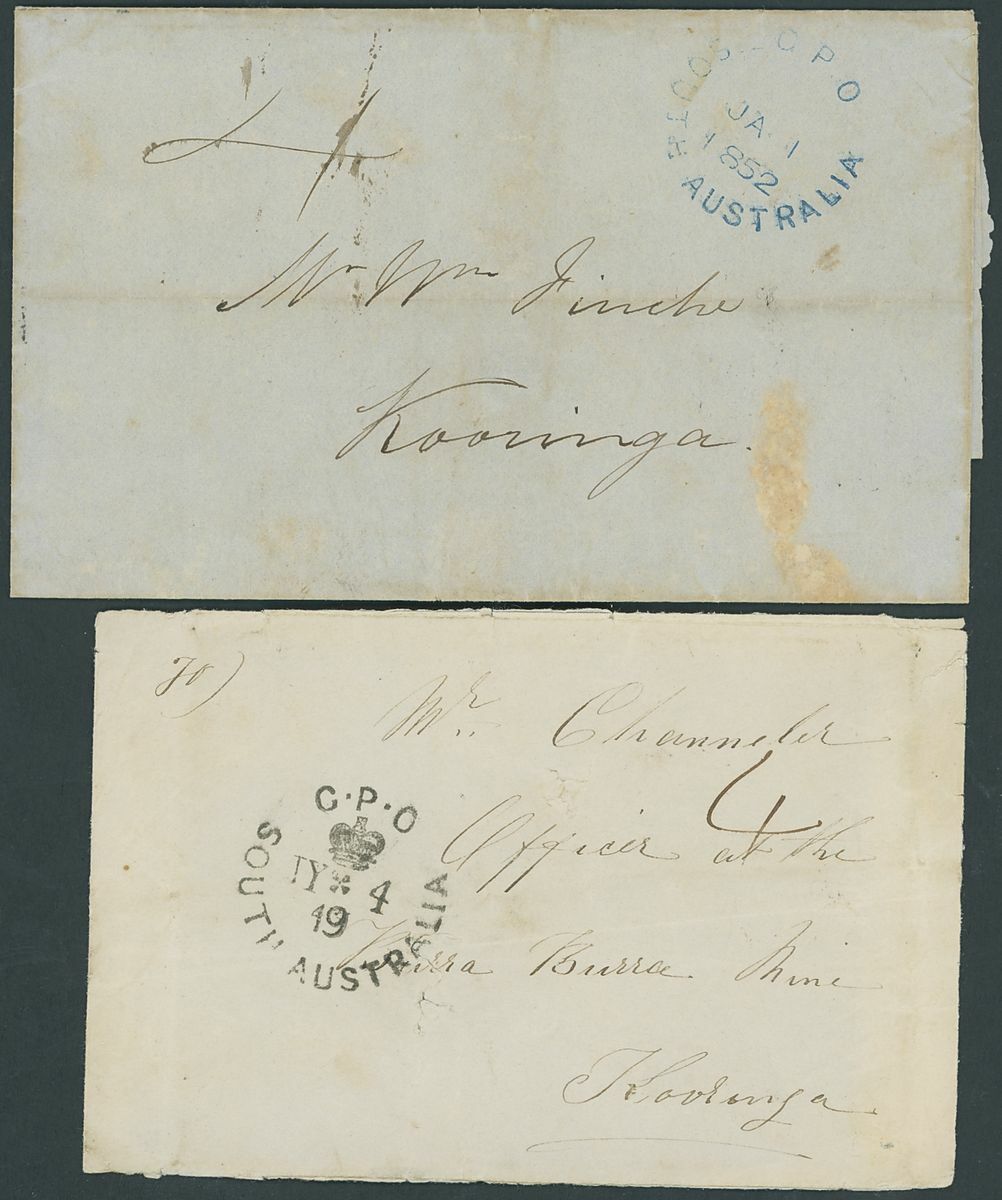 4
SOUTH G.P.O
JA 1
1852
AUSTRALIA
Mr Wm Finche
Kooringa.
70)
Mr. Channeler
4
Officer at the
Burra Burra Mine
Kooringa
G·P·O
SOUTH
JY 4
19
AUSTRALIA